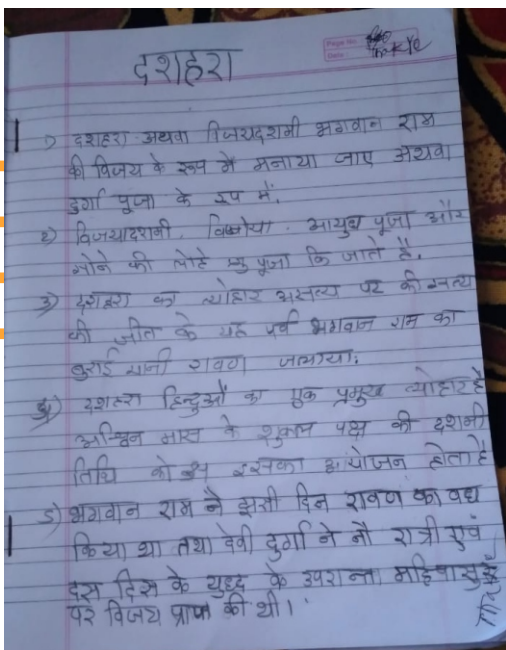 Page No.
Date
दशहरा
1) दशहरा अथवा विजयदशमी भगवान राम
की विजय के रूप में मनाया जाए अथवा
दुर्गा पूजा के रूप में.
2) विजयादशमी. आयुध पूजा और
सोने की लोटे पूजा कि जाते है.
3) दशहरा का त्योहार असत्य पर की सत्य
की जीत के यह पर्व भगवान राम का
बुराई यानी रावण जलाया.
4) दशहरा हिन्दुओं का एक प्रमुख त्योहार है
अश्विन मास के शुक्ल पक्ष की दशमी
तिथि को इसका आयोजन होता है
5) भगवान राम ने इसी दिन रावण का वध
किया था तथा देवी दुर्गा ने नौ रात्री एवं
दस दिन के युध्द के उपरान्त महिषासुर
पर विजय प्राप्त की थी।